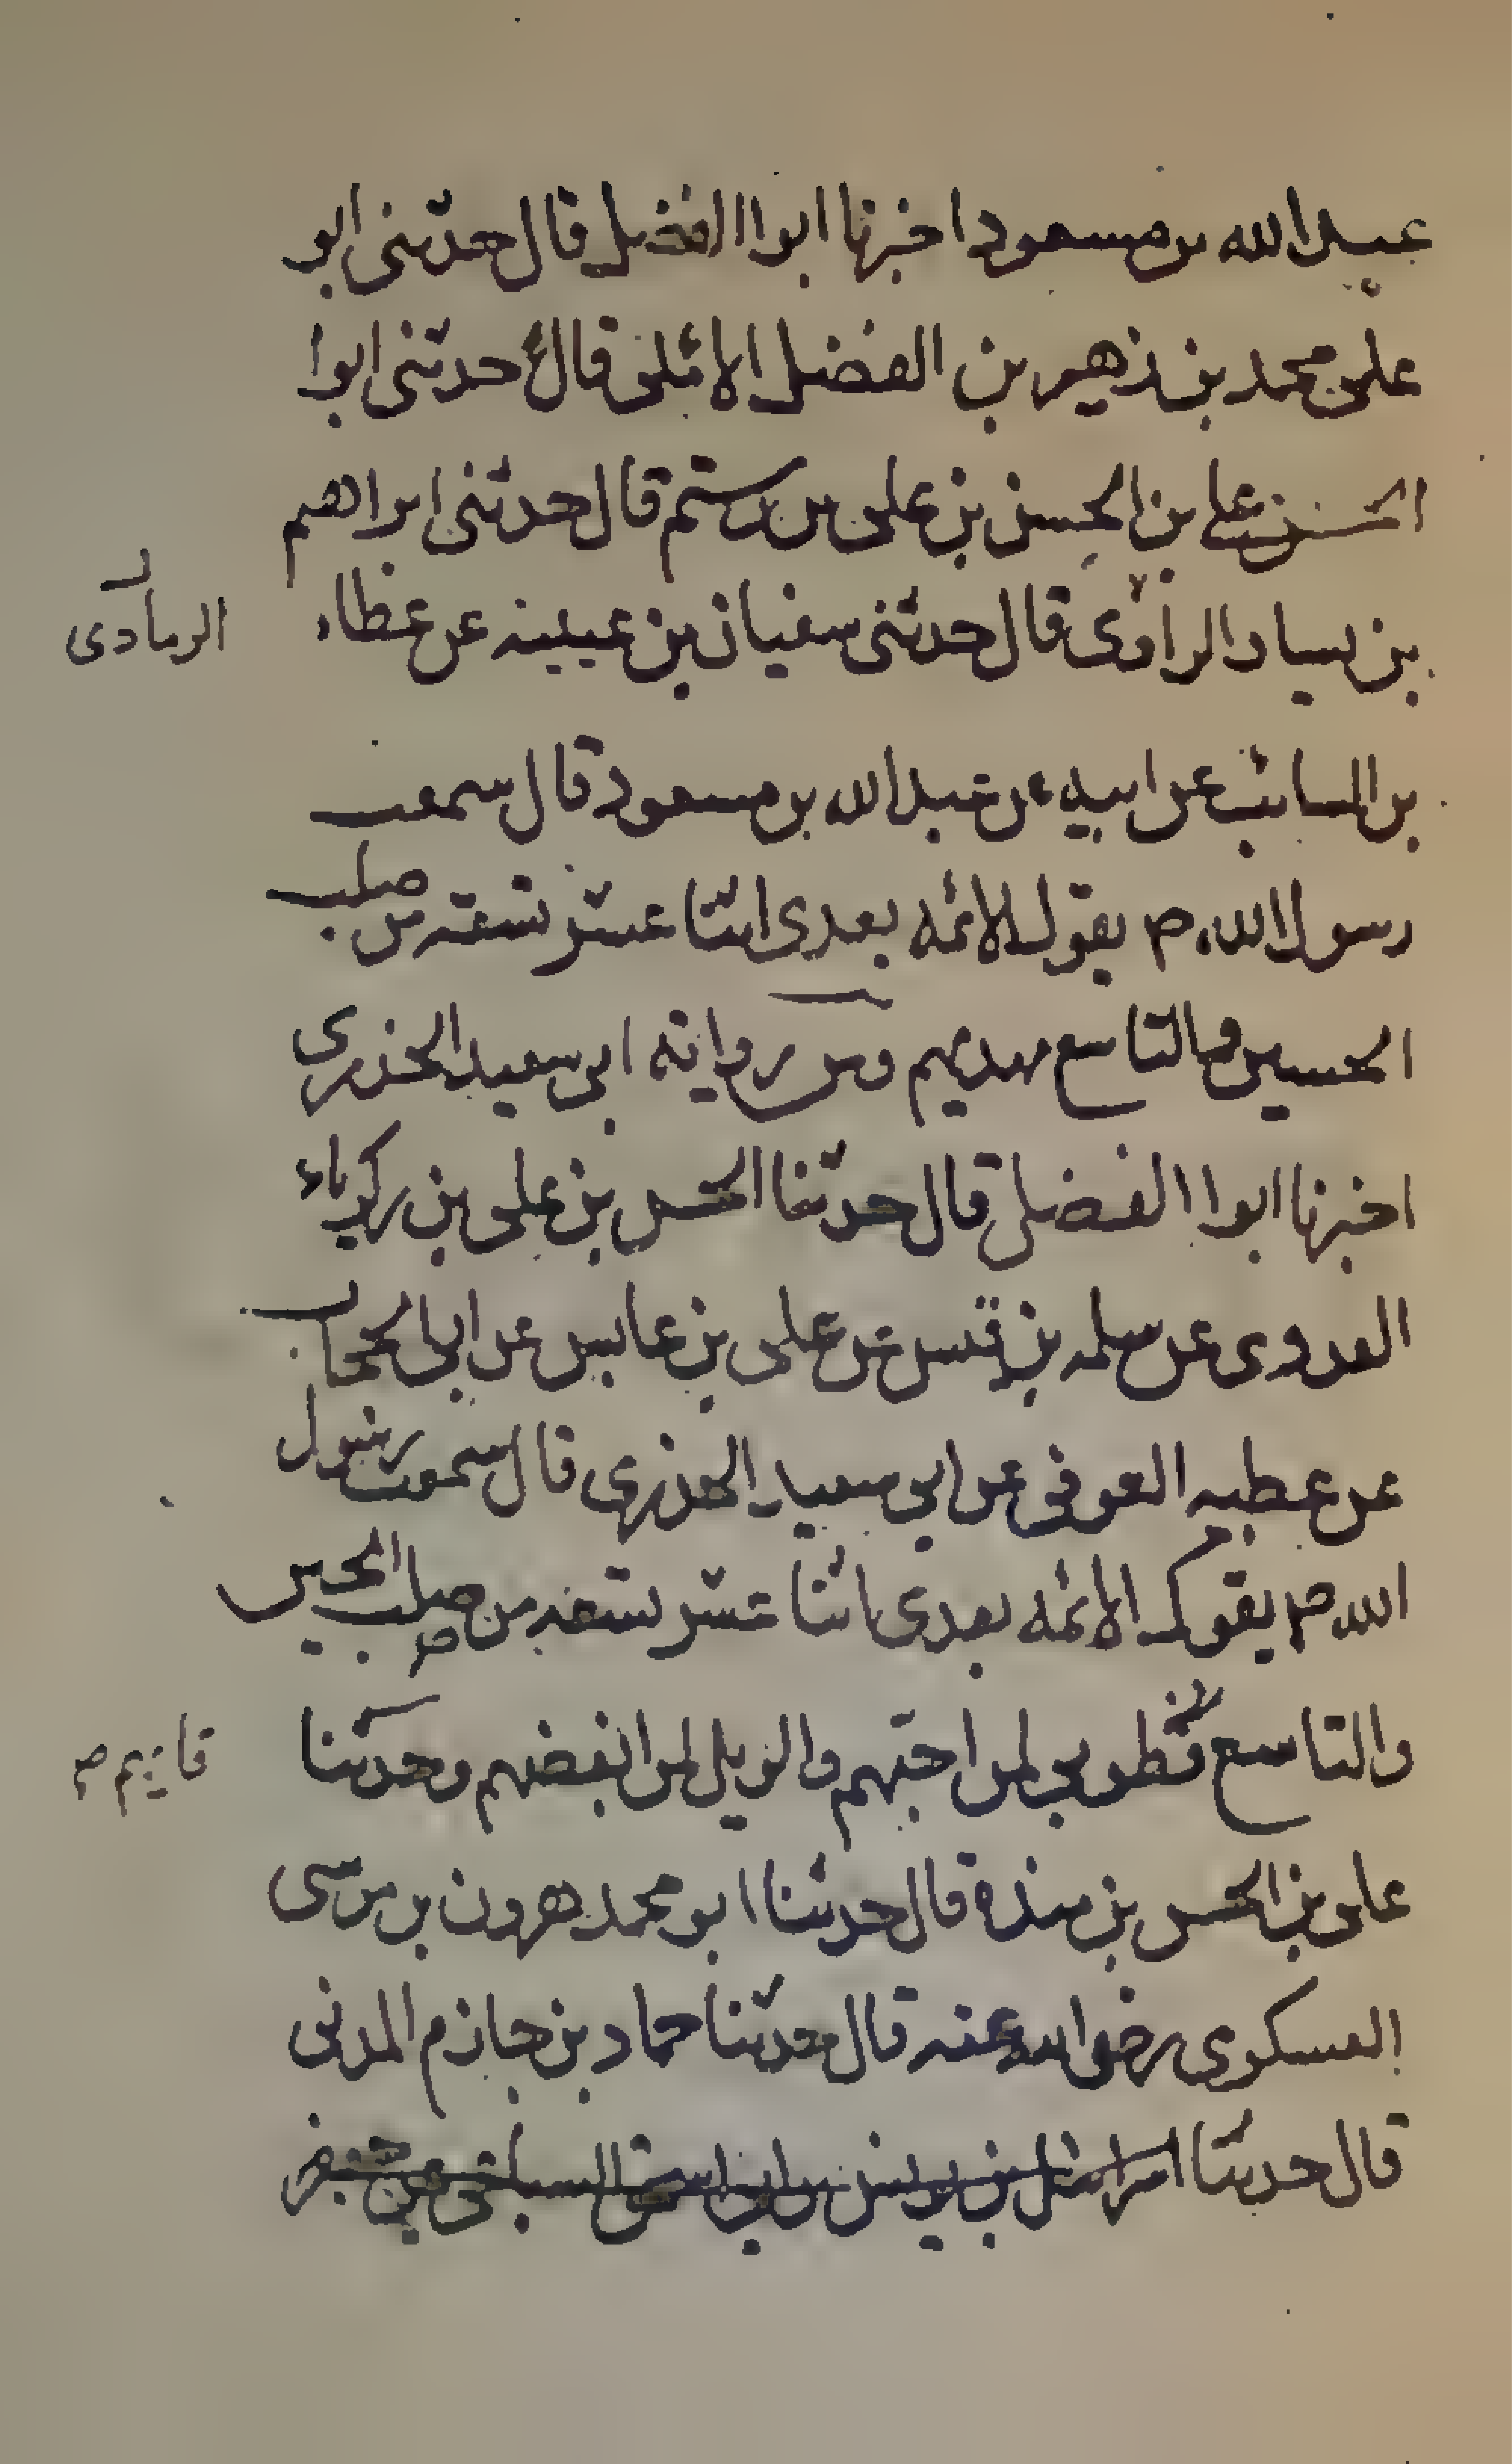 عبد الله بن مسعود اخبرنا ابوا الفضل قال حدثنى ابو
على محمد بن زهير بن الفضل الابلى قال حدثنى ابوا
الحسن على بن الحسن بن على بن رستم قال حدثنى ابراهيم
بن يسار الراوى قال حدثنى سفيان بن عيينه عن عطاء
الرمادى
بن السائب عن ابيه عن عبد الله بن مسعود قال سمعت
رسول الله ص يقول الائمه بعدى اثنا عشر تسعة من صلب
الحسين والتاسع مهديهم ومن رواية ابى سعيد الخدرى
اخبرنا ابوا الفضل قال حدثنا الحسن بن على بن زكرياء
العدوى عن سلمه بن قيس عن على بن عابس عن ابى الحجاب
عن عطيه العوفى عن ابى سعيد الخدرى قال سمعت رسول
الله ص يقول الائمه بعدى اثنا عشر تسعه من صلب الحسين
والتاسع فطوبى لمن احبهم والويل لمن ابغضهم وحدثنا
قايمهم ص
على بن الحسن بن منده قال حدثنا ابو محمد هرون بن موسى
العسكرى رضى الله عنه قال حدثنا حماد بن حازم المدنى
قال حدثنا اسرائيل بن يونس بن ابى اسحق السباعى عن جعفر